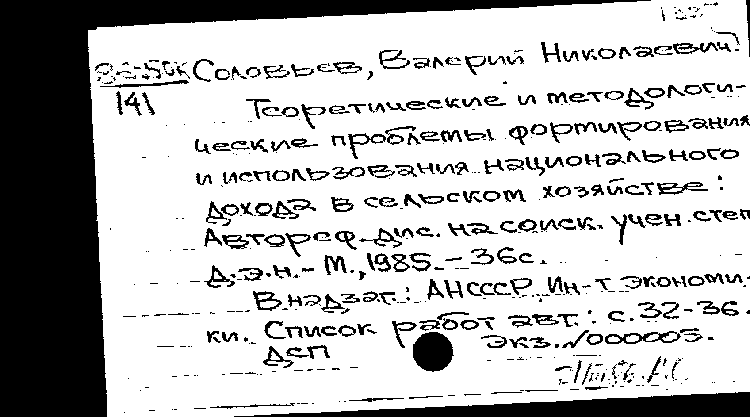 Соловьев, Валерий Николаевич.
141
Теоретические и методологи-
ческие проблемы формирования
и использования национального
дохода в сельском хозяйстве:
Автореф. дис. на соиск. учен. степ
д.э.н. - М., 1985. - 36с.
В надзаг.: АНСССР, Ин-т экономи-
ки. Список работ авт.: с.32-36.
ДСП Экз.№000005.